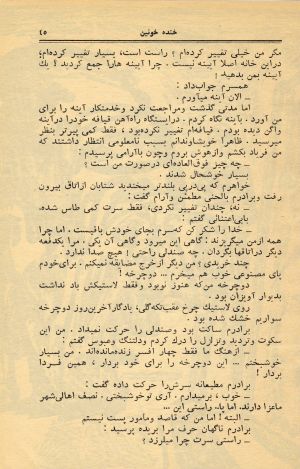 خنده خونین ۴۵
مگر من خیلی تغییر کرده‌ام؟ راست است، بسیار تغییر کرده‌ام؛
دراین خانه اصلا آیینه نیست. چرا آیینه هارا جمع کردید؟ یك
آیینه بمن بدهید!
همسرم جوابداد:
ـ الان آینه میآورم.
اما مدتی گذشت ومراجعت نکرد وخدمتکار آینه را برای
من آورد. بآینه نگاه کردم. درایستگاه راه‌آهن قیافه خودرا درآینه
واگن دیده بودم. قیافه‌ام تغییر نکرده‌بود، فقط کمی پیرتر بنظر
میرسید. ظاهراً خویشاوندانم بسبب نامعلومی انتظار داشتند که
من فریاد بکشم وازهوش بروم وچون باآرامی پرسیدم:
ـ چه چیز فوق‌العاده‌ای درصورت من است؟
بسیار خوشحال شدند.
خواهرم که پی‌درپی بلندتر میخندید شتابان ازاتاق بیرون
رفت وبرادرم بالحنی مطمئن وآرام گفت:
ـ نه، چندان تغییر نکردی، فقط سرت کمی طاس شده.
بابی‌اعتنائی گفتم:
ـ خدا را شکر کن که‌سرم بجای خودش باقیست. اما چرا
همه ازمن میگریزند: گاهی این میرود وگاهی آن یکی. مرا یکدفعه
دیگر دراتاقها بگردان. چه صندلی راحتی! هیچ صدا ندارد.
چند خریدی؟ من دیگر ازخرج مضایقه نمیکنم. برای‌خودم
پای مصنوعی خوب هم میخرم ... دوچرخه!
دوچرخه من‌که هنوز نوبود وفقط لاستیکش باد نداشت
بدیوار آویزان بود.
روی لاستیك چرخ عقب‌تکه‌گلی، یادگارآخرین‌روز دوچرخه
سواریم خشك شده بود.
برادرم ساکت بود وصندلی را حرکت نمیداد. من این
سکوت وتردید وتزلزل را درك کردم ودلتنگ وعبوس گفتم:
ـ ازهنگ ما فقط چهار افسر زنده‌مانده‌اند. من بسیار
خوشبختم ... این دوچرخه را برای خود بردار، همین فردا
بردار!
برادرم مطیعانه سرش‌را حرکت داده گفت:
ـ خوب، برمیدارم. آری توخوشبختی. نصف اهالی‌شهر
ماعزا دارند. اما پا. راستی این ...
ـ البته! اما من که قاصد ومأمور پست نیستم
برادرم ناگهان حرف مرا بریده پرسید:
ـ راستی سرت چرا میلرزد؟